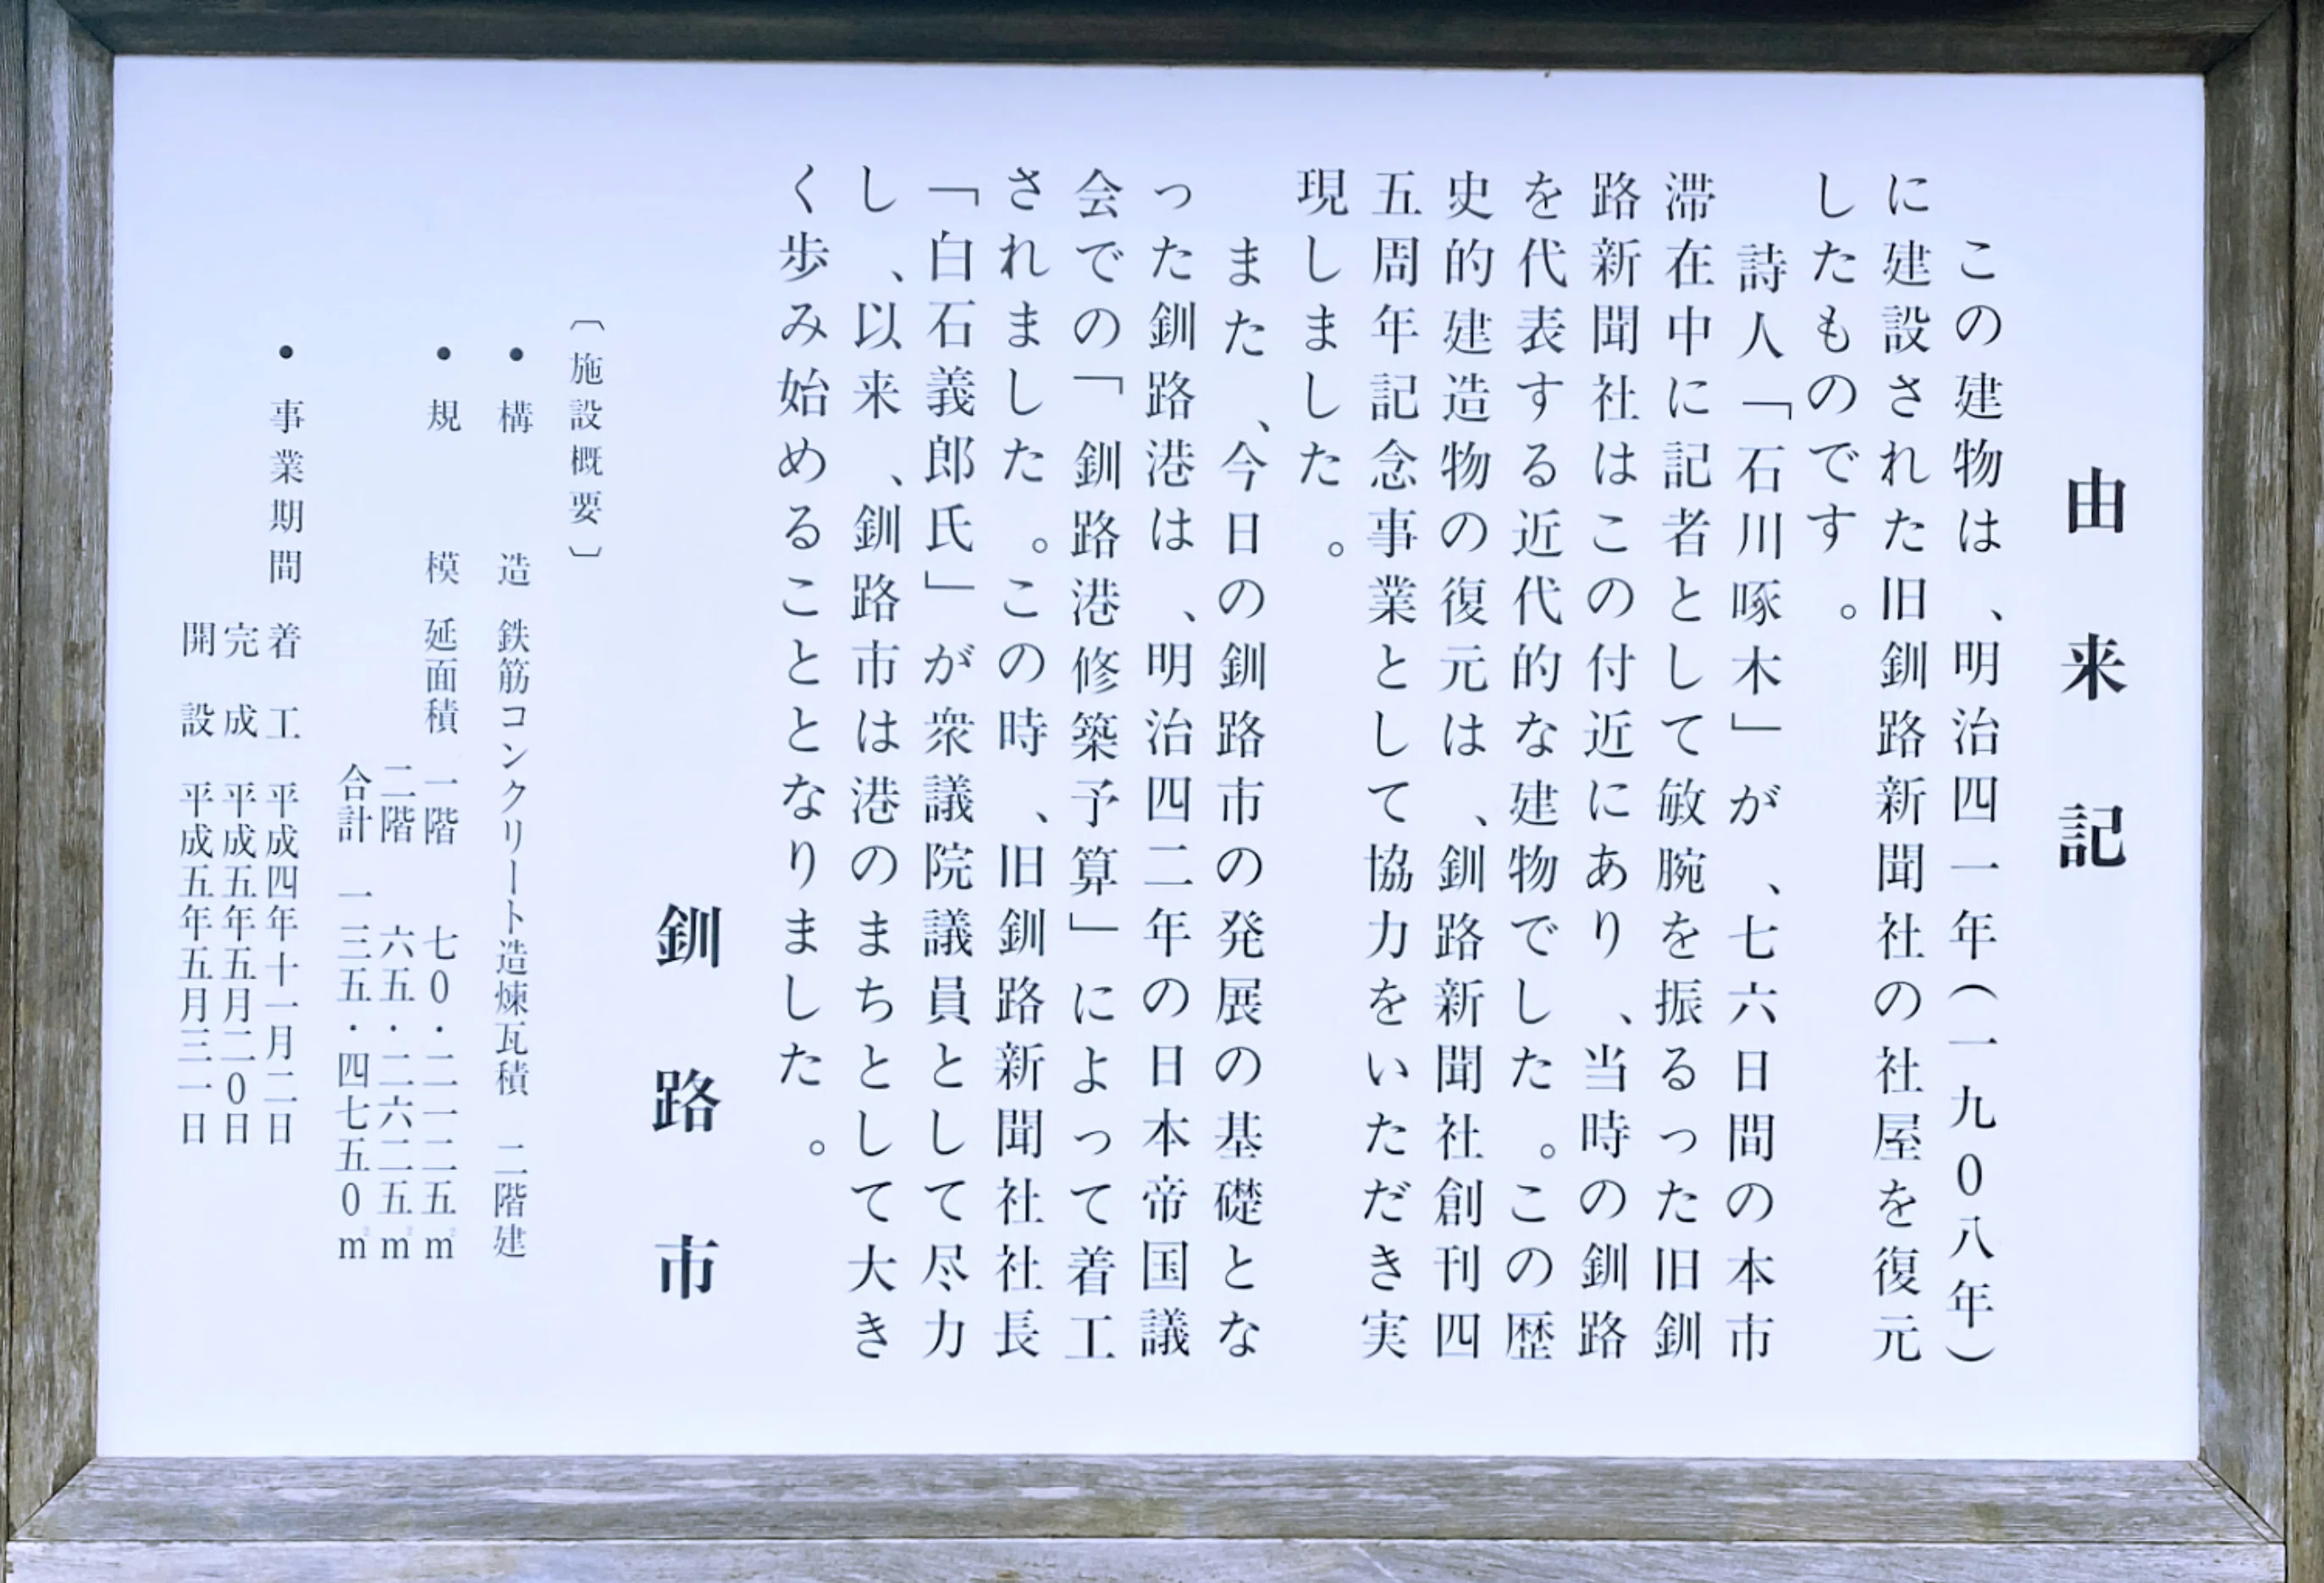 由来記
この建物は、明治四一年(一九〇八年)
に建設された旧釧路新聞社の社屋を復元
したものです。
詩人「石川啄木」が、七六日間の本市
滞在中に記者として敏腕を振るった旧釧
路新聞社はこの付近にあり、当時の釧路
を代表する近代的な建物でした。この歴
史的建造物の復元は、釧路新聞社創刊四
五周年記念事業として協力をいただき実
現しました。
また、今日の釧路市の発展の基礎とな
った釧路港は、明治四二年の日本帝国議
会での「釧路港修築予算」によって着工
されました。この時、旧釧路新聞社社長
「白石義郎氏」が衆議院議員として尽力
し、以来、釧路市は港のまちとして大き
く歩み始めることとなりました。
釧路市
〔施設概要〕
●構造 鉄筋コンクリート造煉瓦積 二階建
●規模 延面積 一階 七〇・二一二五㎡
二階 六五・二六二五㎡
合計 一三五・四七五〇㎡
●事業期間 着工 平成四年十一月二日
完成 平成五年五月二〇日
開設 平成五年五月三一日